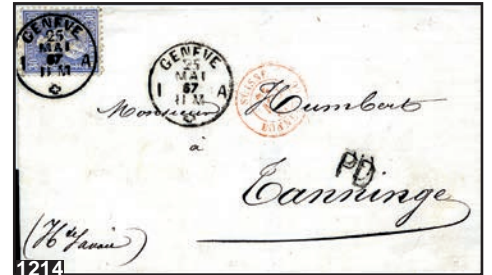 GENÈVE
25
MAI
67
II M
I A
GENÈVE
25
MAI
67
II M
I A
SUISSE
Monsieur Humbert
à
PD
Tanninge
(Hte Savoie)
1214